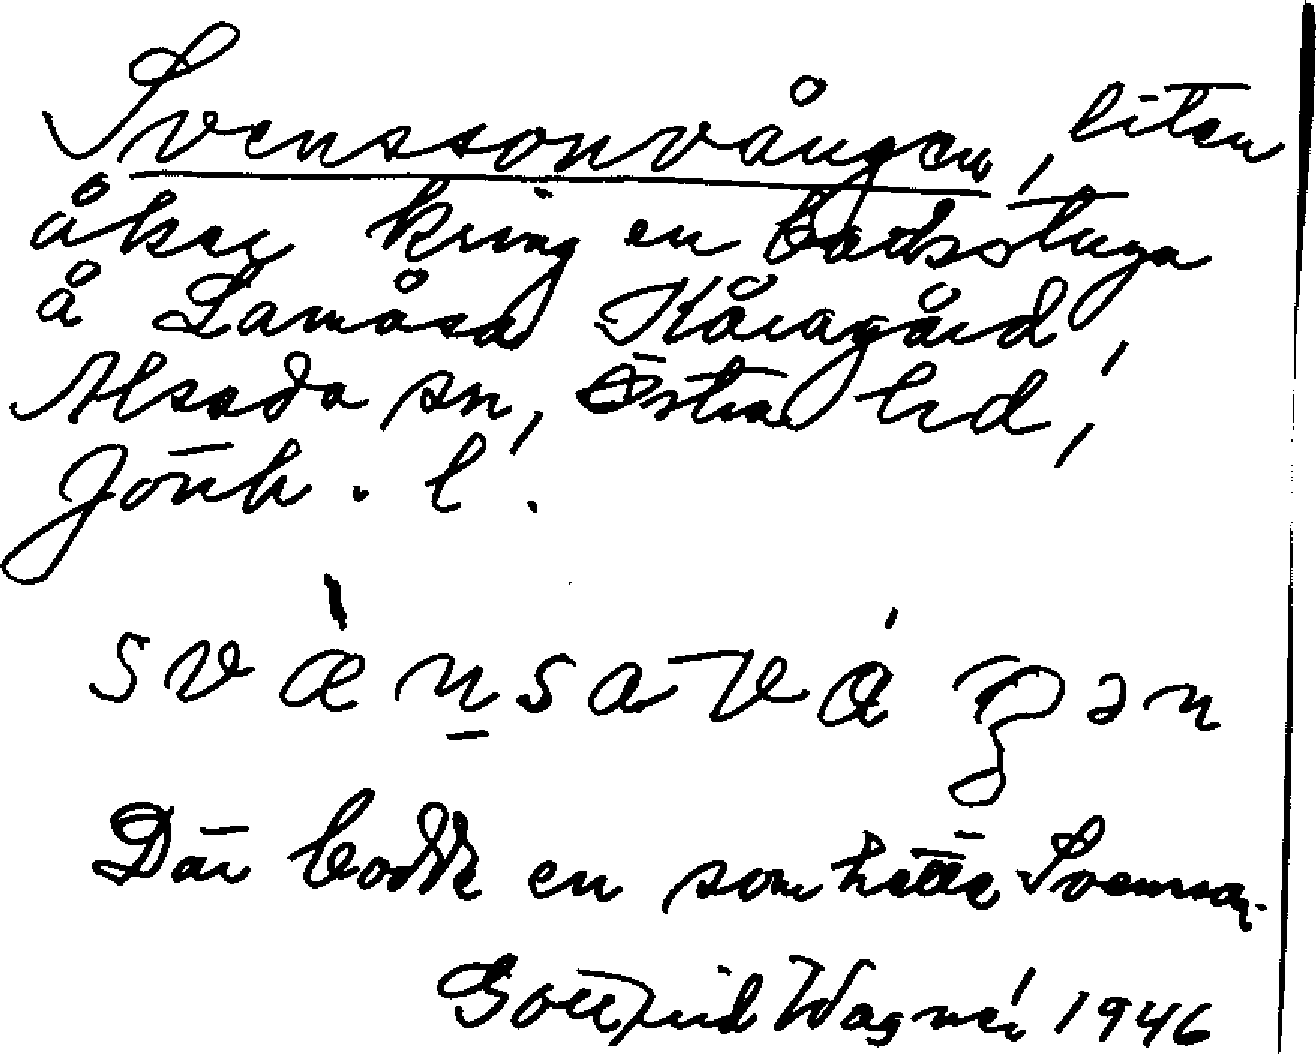 Svenssonvången, liten
åker kring en backstuga
å Lamåsa Kåragård,
Alseda sn, Östra hd,
Jönk. l.
svænsavágən
Där bodde en som hette Svensson.
Gottfrid Wagnér 1946